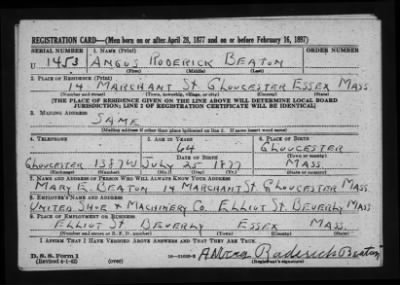 REGISTRATION CARD—(Men born on or after April 28, 1877 and on or before February 16, 1897)
SERIAL NUMBER 1. NAME (Print) ORDER NUMBER
U 1453 ANGUS RODERICK BEATON
(First) (Middle) (Last)
2. PLACE OF RESIDENCE (Print)
14 MARCHANT ST GLOUCESTER ESSEX MASS
(Number and street) (Town, township, village, or city) (County) (State)
[THE PLACE OF RESIDENCE GIVEN ON THE LINE ABOVE WILL DETERMINE LOCAL BOARD
JURISDICTION; LINE 2 OF REGISTRATION CERTIFICATE WILL BE IDENTICAL]
3. MAILING ADDRESS
SAME
[Mailing address if other than place indicated on line 2. If same insert word same]
4. TELEPHONE 5. AGE IN YEARS 6. PLACE OF BIRTH
64 GLOUCESTER
DATE OF BIRTH (Town or county)
GLOUCESTER JULY 25 1877 MASS
(Exchange) (Number) (Mo.) (Day) (Yr.) (State or country)
7. NAME AND ADDRESS OF PERSON WHO WILL ALWAYS KNOW YOUR ADDRESS
MARY E. BEATON 14 MARCHANT ST. GLOUCESTER MASS.
8. EMPLOYER'S NAME AND ADDRESS
UNITED SHOE & MACHINERY CO. ELLIOT ST. BEVERLY MASS
9. PLACE OF EMPLOYMENT OR BUSINESS
ELLIOTT ST BEVERLY ESSEX MASS.
(Number and street or R. F. D. number) (Town) (County) (State)
I AFFIRM THAT I HAVE VERIFIED ABOVE ANSWERS AND THAT THEY ARE TRUE.
D. S. S. Form 1
(Revised 4-1-42) (over) Roderick Beaton
(Registrant's signature)